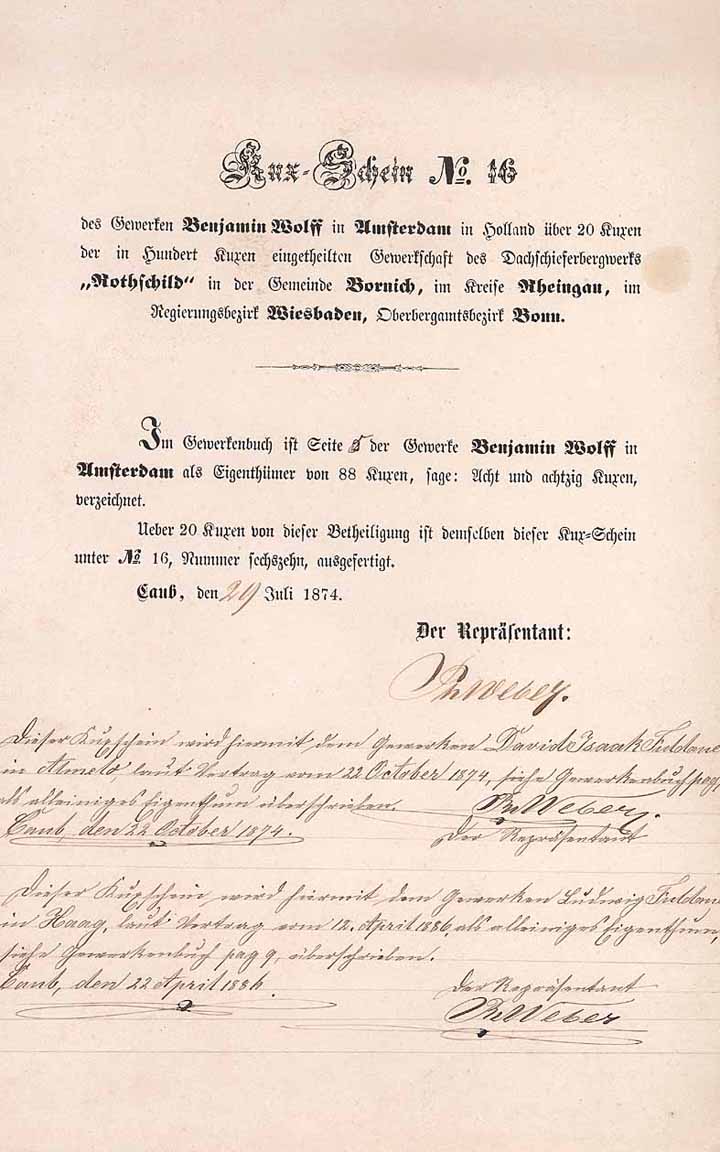 Kux-Schein No. 16
des Gewerken Benjamin Wolff in Amsterdam in Holland über 20 Kuxen
der in Hundert Kuxen eingetheilten Gewerkschaft des Dachschieferbergwerks
„Rothschild" in der Gemeinde Bornich, im Kreise Rheingau, im
Regierungsbezirk Wiesbaden, Oberbergamtsbezirk Bonn.
Im Gewerkenbuch ist Seite 5 der Gewerke Benjamin Wolff in
Amsterdam als Eigenthümer von 88 Kuxen, sage: Acht und achtzig Kuxen,
verzeichnet.
Ueber 20 Kuxen von dieser Betheiligung ist demselben dieser Kux-Schein
unter No 16, Nummer sechszehn, ausgefertigt.
Caub, den 29 Juli 1874.
Der Repräsentant:
Ph Weber.
Dieser Kuxschein wird hiermit dem Gewerken David Isaak
in Almelo, laut Vertrag vom 22 October 1874, siehe Gewerkenbuch pag,
als alleiniges Eigenthum überschrieben. Ph Weber.
Caub, den 22 October 1874. Der Repräsentant
Dieser Kuxschein wird hiermit dem Gewerken Ludwig
in Haag, laut Vertrag vom 12. April 1886 als alleiniges Eigenthum,
siehe Gewerkenbuch pag 9, überschrieben.
Caub, den 22 April 1886. Der Repräsentant
Ph Weber